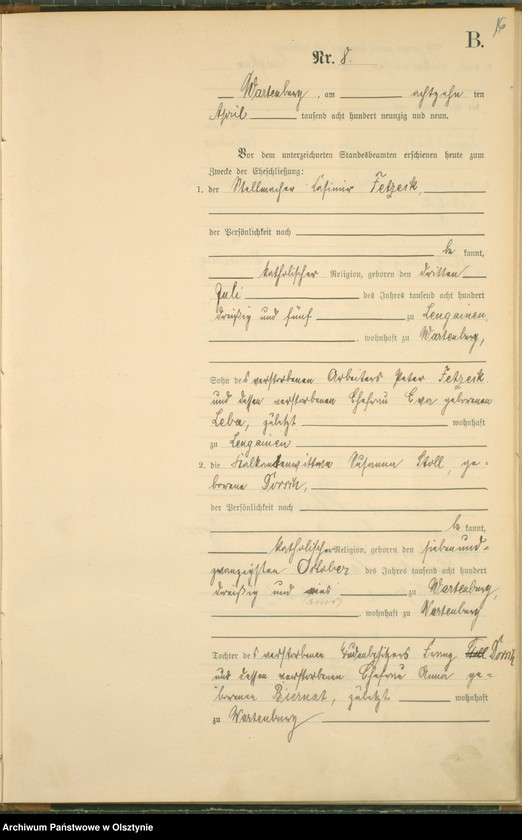 B.
Nr. 8.
Wartenburg, am achtzehn ten
April tausend acht hundert neunzig und neun.
Vor dem unterzeichneten Standesbeamten erschienen heute zum
Zwecke der Eheschließung:
1. der Stellmacher Casimir Fetzeik,
der Persönlichkeit nach
be kannt,
katholischer Religion, geboren den dritten
Juli des Jahres tausend acht hundert
dreißig und fünf zu Lengainen,
, wohnhaft zu Wartenburg,
Sohn des verstorbenen Arbeiters Peter Fetzeik
und dessen verstorbenen Ehefrau Eva geborenen
Leba, zuletzt wohnhaft
zu Lengainen
2. die Susanna Stoll, ge-
borene
der Persönlichkeit nach
be kannt,
katholischer Religion, geboren den siebenund-
zwanzigsten October des Jahres tausend acht hundert
dreißig und zu Wartenburg,
, wohnhaft zu Wartenburg
Tochter des verstorbenen Franz
und dessen verstorbenen Ehefrau Anna ge-
borenen Biernat, zuletzt wohnhaft
zu Wartenburg
Archiwum Państwowe w Olsztynie